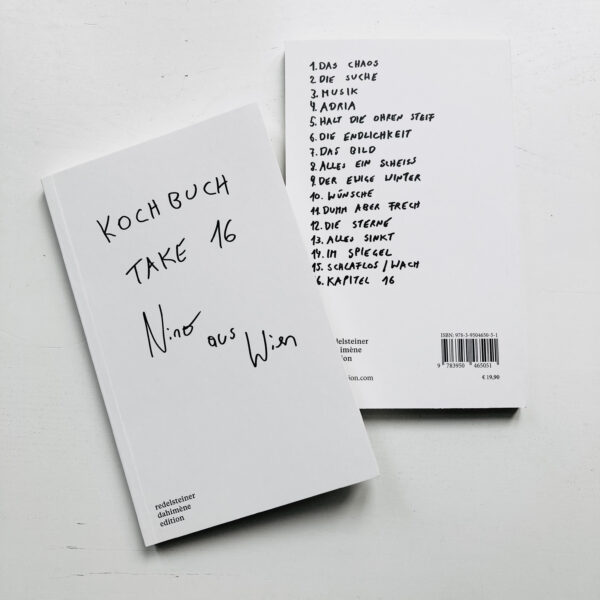 KOCHBUCH
TAKE 16
Nino aus Wien
redelsteiner
dahimène
edition
1. DAS CHAOS
2. DIE SUCHE
3. MUSIK
4. ADRIA
5. HALT DIE OHREN STEIF
6. DIE ENDLICHKEIT
7. DAS BILD
8. ALLES EIN SCHEISS
9. DER EWIGE WINTER
10. WÜNSCHE
11. DUMM ABER FRECH
12. DIE STERNE
13. ALLES SINKT
14. IM SPIEGEL
15. SCHLAFLOS / WACH
6. KAPITEL 16
ISBN: 978-3-9504650-5-1
9 783950 465051
€ 19,90
edelsteiner
ahimène
ition
ition.com